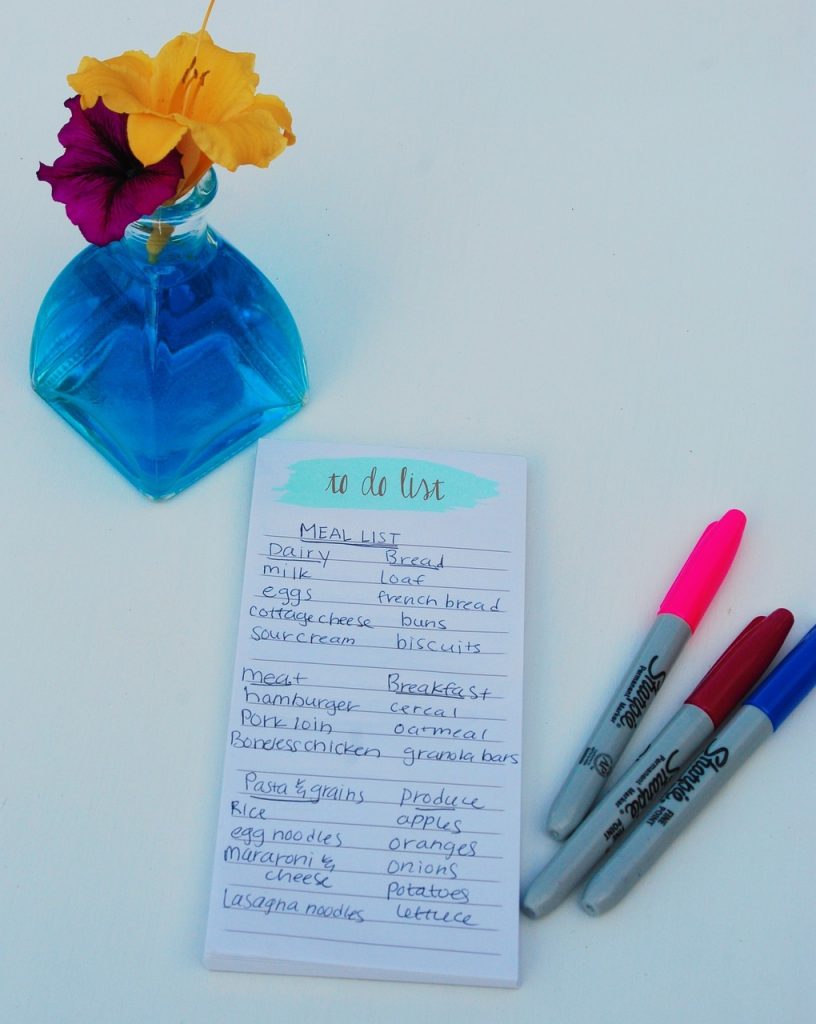 to do list
MEAL LIST
Dairy Bread
milk Loaf
eggs french bread
cottage cheese buns
sour cream biscuits
meat Breakfast
hamburger cereal
Pork loin oatmeal
Boneless chicken granola bars
Pasta & grains produce
Rice apples
egg noodles oranges
mararoni & onions
cheese potatoes
Lasagna noodles lettuce
Sharpie
Permanent Marker
Sharpie
Permanent Marker
FINE POINT
Sharpie
FINE POINT